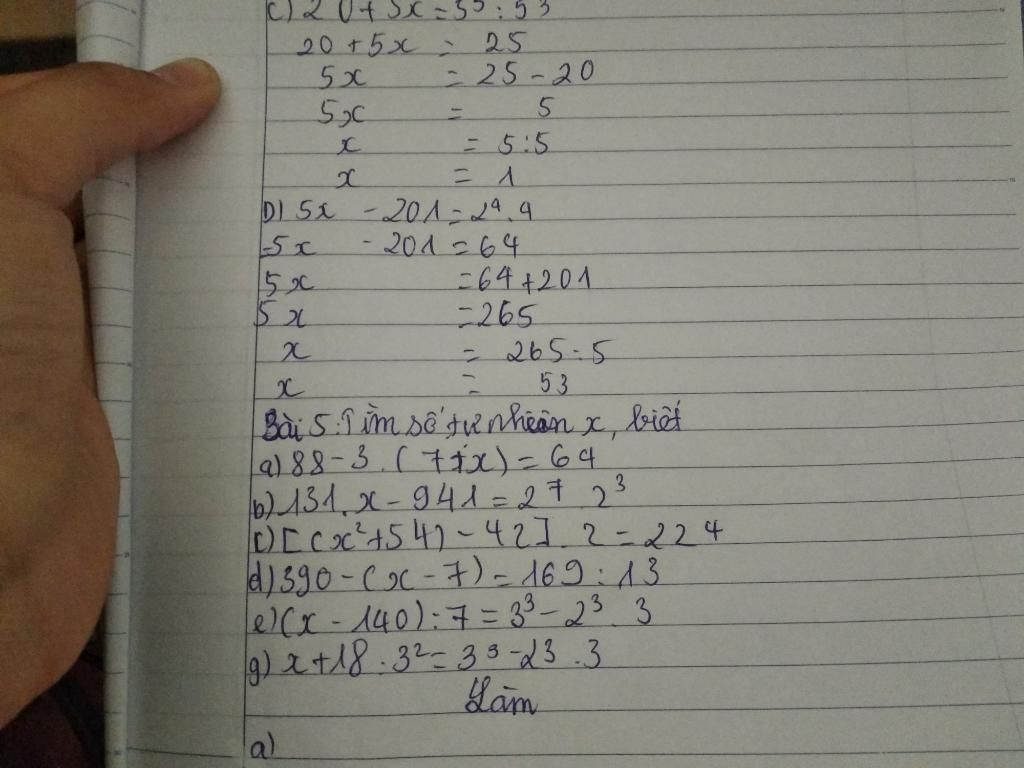 20 + 5x = 25
5x = 25 - 20
5x = 5
x = 5:5
x = 1
D) 5x - 201 = 2⁴. 4
5x - 201 = 64
5x = 64 + 201
5x = 265
x = 265 : 5
x = 53
Bài 5: Tìm số tự nhiên x, biết
a) 88 - 3 . ( 7 + x ) = 64
b) 131. x - 941 = 2⁷ . 2³
c) [ ( x² + 54 ) - 42 ] . 2 = 224
d) 390 - ( x - 7 ) = 169 : 13
e) ( x - 140 ) : 7 = 3³ - 2³ . 3
g) x + 18 . 3² = 3³ - 23 . 3
Làm
a)